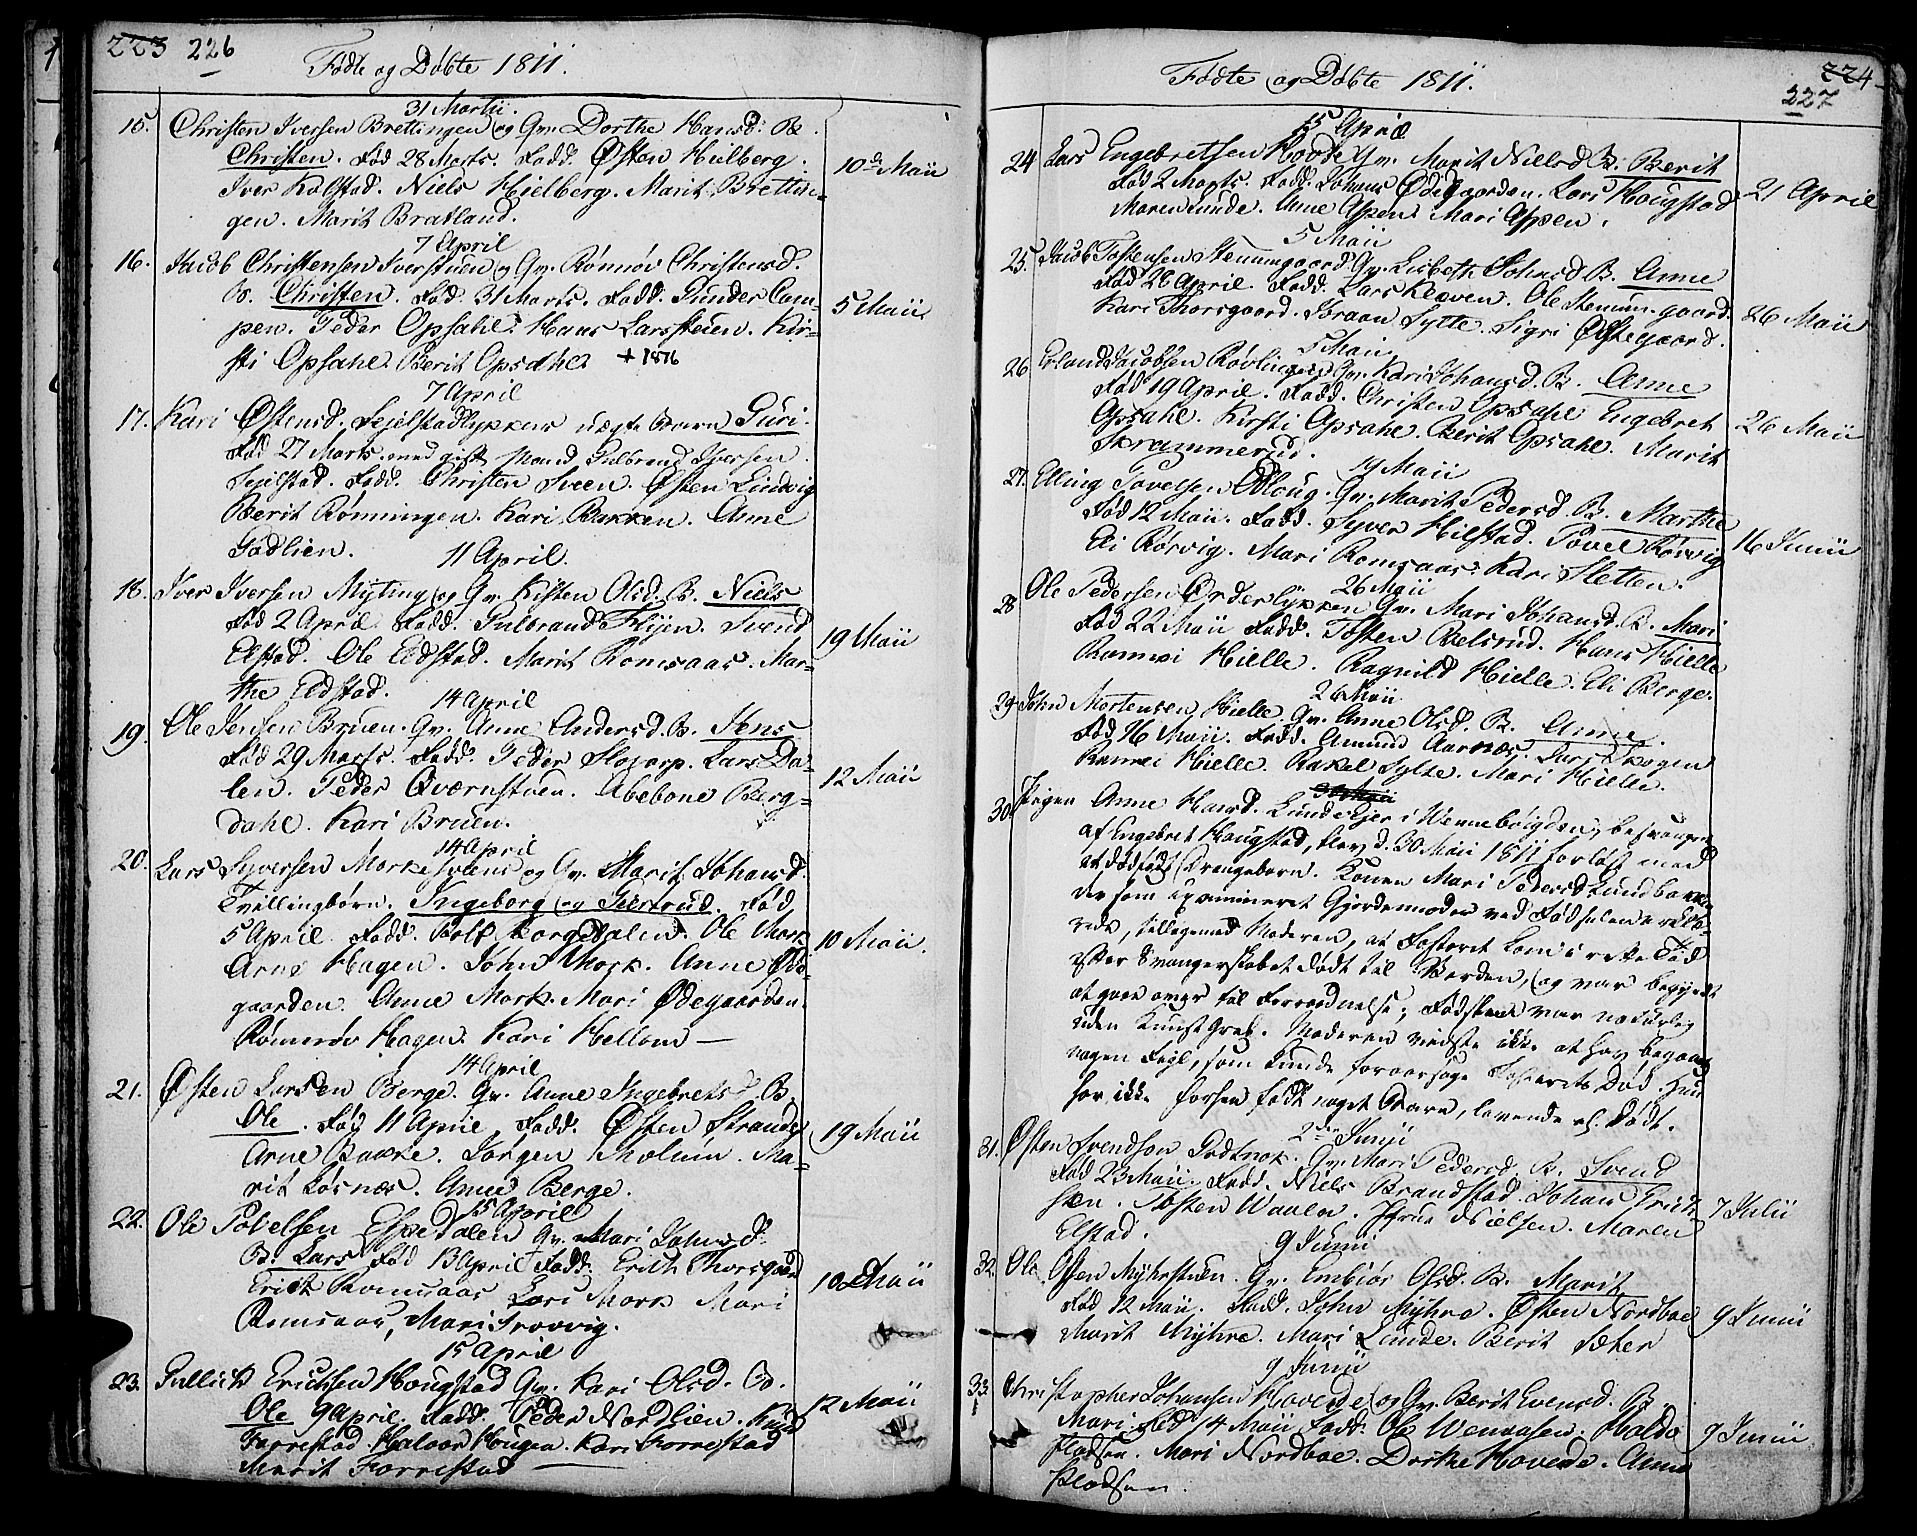 223 226
Fødte og Døbte 1811.
31 Martii.
15. Christen Iversen Brettingen og Qv. Dorthe Hansd. B.
Christen. Fød 28 Marts. Fadd. Østen Hielberg.
Iver Kalstad. Niels Hielberg. Marit Brettin-
gen. Marit Bratland.
10de Maii
7 April
16. Jacob Christensen Iverstuen og Qv. Rønnøv Christensd.
B. Christen. Fød. 31 Marts. Fadd. Gunder Cam-
pen. Peder Opsahl. Hans Larsstuen. Kir-
sti Opsahl. Berit Opsahl + 1876
5 Maii
7 April
17. Kari Østensd. Fejelstadlykken uægte Barn Guri.
Fød 27 Marts. med gift Mand Gulbrand Iversen
Fejelstad. Fadd. Christen Sveen. Østen Lindvig
Berit Rønningen. Kari Bakken. Anne
Jødlien.
11 April.
18. Iver Iversen Myting og Qv. Kisten Olsd. B. Niels
Fød 2 April. Fadd. Gulbrand Flyen. Svend
Elstad. Ole Eidstad. Marit Romsaas. Mar-
the Eidstad.
19 Maii
14 April
19. Ole Jensen Bruen. Qv. Anne Andersd. B. Jens
Fød 29 Marts. Fadd. Peder Florarp. Lars Da-
len. Peder Qvernstuen. Abebone Berg-
dahl. Kari Bruen.
12 Maii
14 April
20. Lars Syversen Morkesveen og Qv. Marit Johansd.
Tvillingbørn. Ingeborg og Giertrud. Fød
5 April. Fadd. Rolf Korgedalen. Ole Mork
Arne Hagen. John Mork. Anne Øde-
gaarden. Anne Mork. Mari Ødegaarden.
Rønnøv Hagen. Kari Hellom —
10 Maii.
14 April
21. Østen Larsen Berge. Qv. Anne Ingebretsd B.
Ole. Fød 11 April. Fadd. Østen Strande
Arne Bakke. Jørgen Tholum. Ma-
rit Løsnæs. Anne Berge.
19 Maii
15 April
22. Ole Povelsen Espedalen Qv. Mari Johnsd.
B. Lars Fød 13 April Fadd. Erich Thorsgaard
Erich Romsaas Lars Mork Mari
Romsaas, Mari Frovvig.
10 Maii
15 April
23. Gullick Erichsen Hougstad Qv. Kari Olsd. B.
Ole 9 April. Fadd. Peder Nordlien. Knud
Forrestad Halvor Hougen. Kari Forrestad
Marit Forrestad
12 Maii
Fødte og Døbte 1811.
224
227
15 April
24 Lars Engebretsen Hovde Qv. Marit Nielsd B. Berit
Fød 2 Marts. Fadd. Johans Ødegaarden. Lars Hougstad
Maren Lunde. Anne Aspen. Mari Aspen.
21 April
5 Maii
25. Jacob Tostensen Stemmgaard Qv. Lisbeth Johnsd B. Anne
Fød 26 April. Fadd. Lars Kleven. Ole Stemmgaard
Kari Thorsgaard. Joraan Sylte. Sigri Østegaard.
26 Maii
5 Maii
26 Erland Jacobsen Røvlingen Qv. Kari Johansd. B. Anne
Fød 19 April. Fadd. Christen Opsahl Engebret
Opsahl. Kirsti Opsahl. Berit Opsahl. Marit
Skrammerud.
26 Maii
19 Maii
27. Elling Povelsen Odloug. Qv. Marit Pedersd. B. Marthe
Fød 12 Maii. Fadd. Syver Hilstad. Povel Rørvig
Eli Rørvig. Mari Romsaas. Kari Sletten.
16 Junii
26 Maii
28 Ole Pedersen Brederlykken Qv. Mari Johansd. B. Mari
Fød 22 Maii Fadd. Tosten Belsrud. Hans Hielle
Ramvi Hielle. Ragnild Hielle. Eli Berge.
26 Maii
29. John Mortensen Hielle. Qv. Anne Olsd. B. Anne.
Fød 16 Maii. Fadd. Amund Aarnæs. Lars Skogen
Ramvi Hielle. Rakel Sylte. Mari Hielle.
30 Maii
30. Pigen Anne Hansd. Lunde Ejer i Vennebøigden, besvangret
af Engebret Hougstad, blev d. 30 Maii 1811 forløst med
et dødfødt Drengebarn. Konen Mari Pedersd Lundbakken
der som examineret Gjordemoder ved Fødselen erklæ-
rede, tilligemed Moderen, at Fosteret kom i rette Tid
efter Svangerskabet dødt til Verden, og var begyndt
at gaae over til Forraadnelse; Fødselen var naturlig
uden Kunst Greb. Moderen vidste ikke at hav begaaet
nogen Fejl, som kunde foraarsage Fosterets Død. Hun
har ikke forhen født noget Barn, levende el. dødt.
2den Junii
31. Østen Svendsen Prestnok. Qv. Mari Pedersd. B. Svend
Fød 23 Maii. Fadd. Niels Brandstad. Johan Frich
sen. Tosten Waalen. Hr. Nielsen. Maren
Elstad.
7 Julii
9 Junii
32. Ole Osten Myhrstuen. Qv. Embiør Olsd. B. Marit
Fød 12 Maii. Fadd. John Myhre. Østen Nordboe
Marit Myhre. Mari Lunde. Berit Sæter
9 Junii
9 Junii
33. Christopher Johansen Hovede og Qv. Berit Evensd. B.
Mari. Fød 14 Maii Fadd. Ole Wenaasen. Haldo
Fladsen. Mari Nordboe. Dorthe Hovede. Anne
Fladsen.
9 Junii